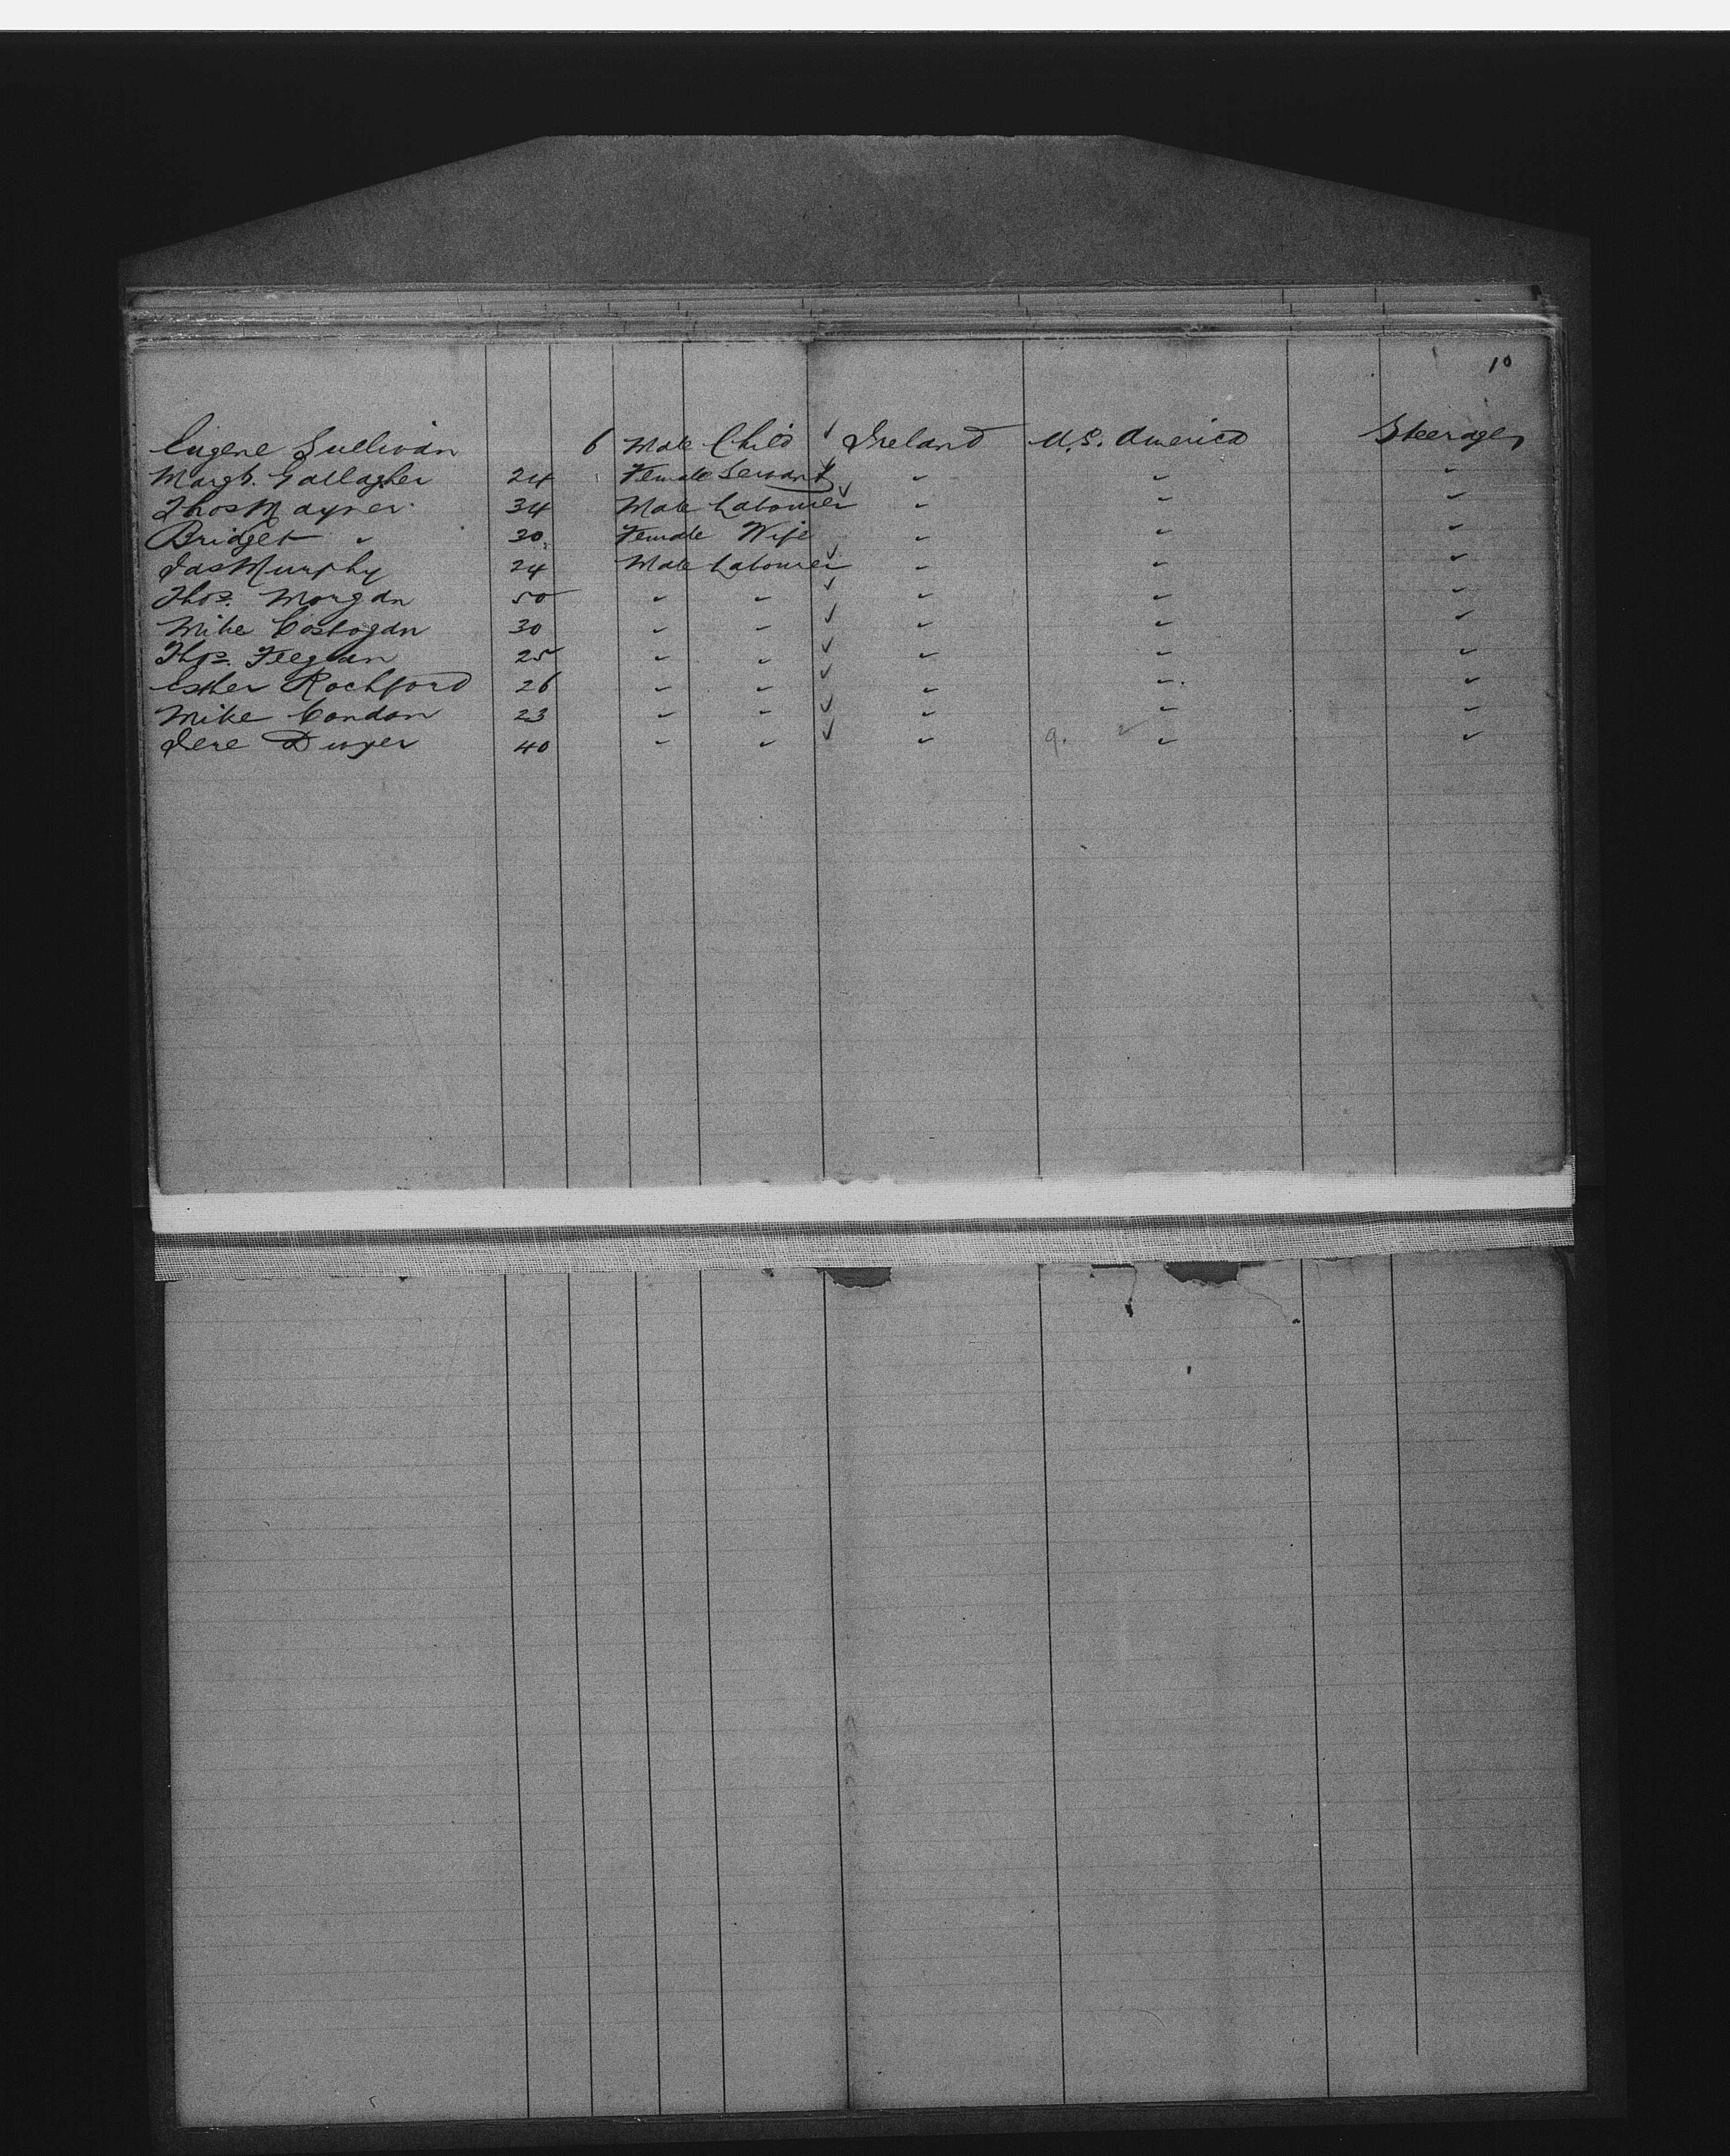 10
Eugene Sullivan 6 Male Child ✓ Ireland U.S. America Steerage
Margt. Gallagher 24 Female Servant ✓ " " "
Thos Mayner 34 Male Labourer ✓ " " "
Bridget " 30 Female Wife " " "
Jas Murphy 24 Male Labourer ✓ " " "
Thos. Morgan 50 " " ✓ " " "
Mike Costogan 30 " " ✓ " " "
Thos. 25 " " ✓ " " "
Esther Rochford 26 " " ✓ " " "
Mike Condon 23 " " ✓ " " "
Jere Dwyer 40 " " ✓ " " "